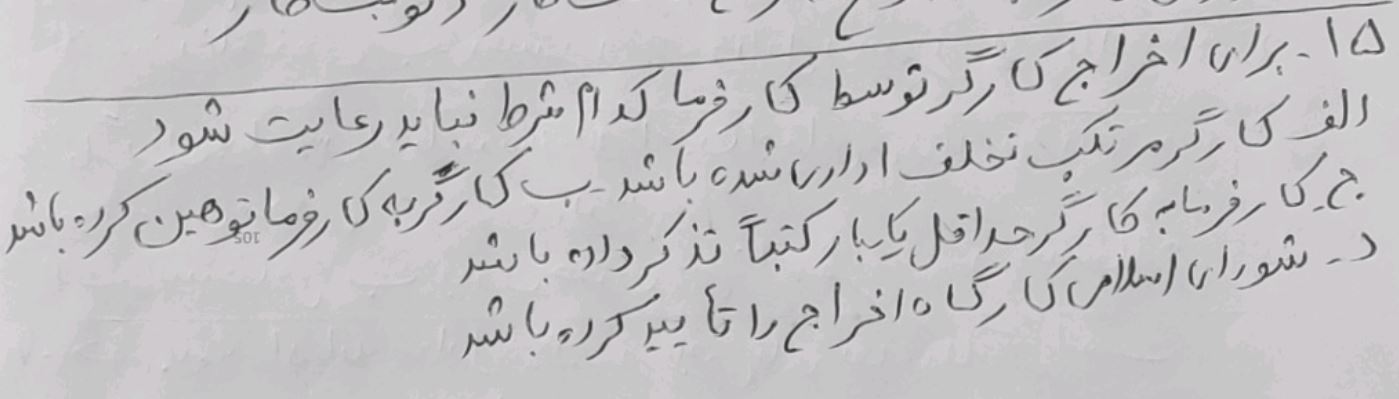 ۱۵ - برای اخراج کارگر توسط کارفرما کدام شرط نباید رعایت شود
الف کارگر مرتکب تخلف اداری شده باشد - ب کارگر به کارفرما توهین کرده باشد
ج - کارفرما به کارگر حداقل یکبار کتباً تذکر داده باشد
د - شورای اسلامی کارگاه اخراج را تأیید کرده باشد